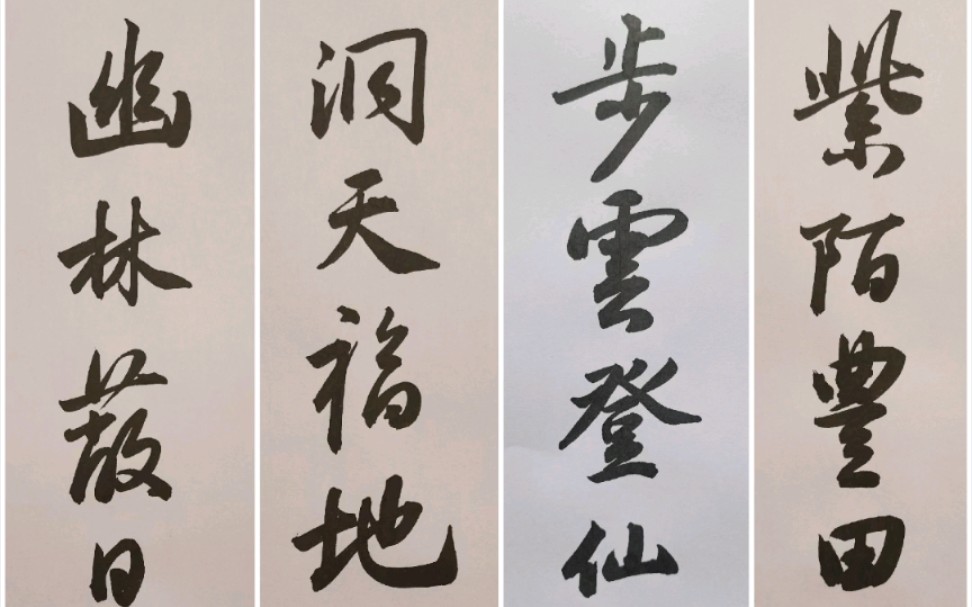 紫陌豐田
步雲登仙
洞天福地
幽林蔽日